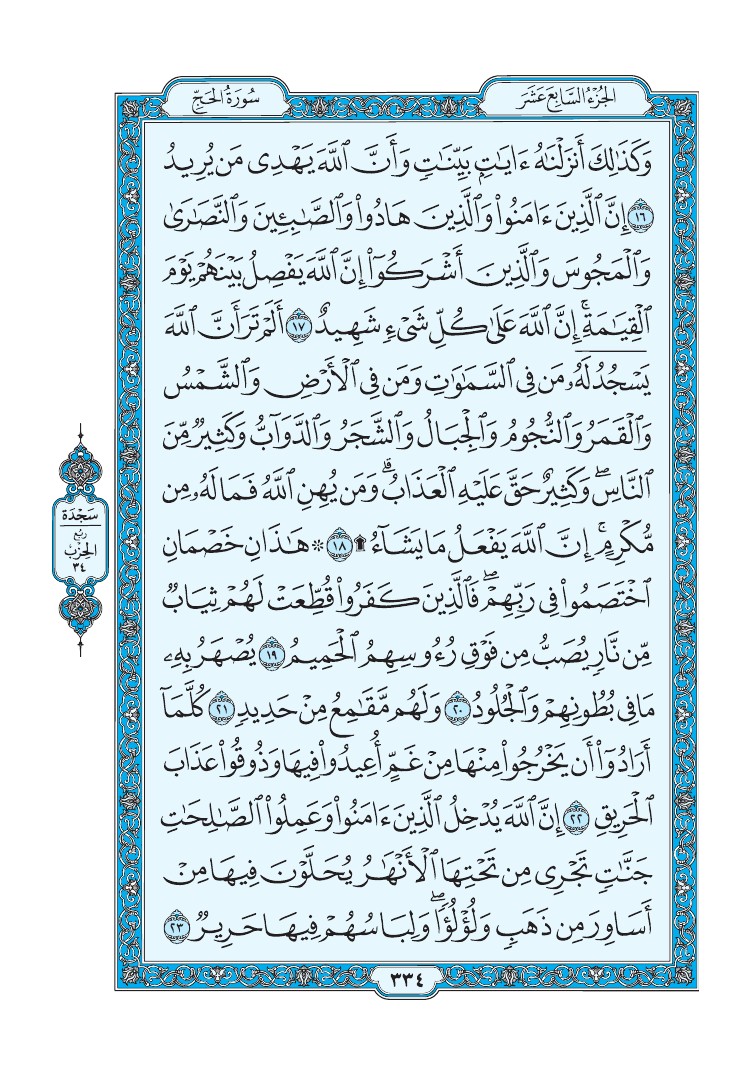 الجُزْءُ السَّابِعَ عَشَرَ
سُورَةُ الحَجّ
وَكَذَٰلِكَ أَنزَلْنَٰهُ ءَايَٰتٍۭ بَيِّنَٰتٍ وَأَنَّ ٱللَّهَ يَهْدِى مَن يُرِيدُ
١٦ إِنَّ ٱلَّذِينَ ءَامَنُوا۟ وَٱلَّذِينَ هَادُوا۟ وَٱلصَّٰبِـِٔينَ وَٱلنَّصَٰرَىٰ
وَٱلْمَجُوسَ وَٱلَّذِينَ أَشْرَكُوٓا۟ إِنَّ ٱللَّهَ يَفْصِلُ بَيْنَهُمْ يَوْمَ
ٱلْقِيَٰمَةِ ۚ إِنَّ ٱللَّهَ عَلَىٰ كُلِّ شَىْءٍ شَهِيدٌ ١٧ أَلَمْ تَرَ أَنَّ ٱللَّهَ
يَسْجُدُ لَهُۥ مَن فِى ٱلسَّمَٰوَٰتِ وَمَن فِى ٱلْأَرْضِ وَٱلشَّمْسُ
وَٱلْقَمَرُ وَٱلنُّجُومُ وَٱلْجِبَالُ وَٱلشَّجَرُ وَٱلدَّوَآبُّ وَكَثِيرٌ مِّنَ
ٱلنَّاسِ ۖ وَكَثِيرٌ حَقَّ عَلَيْهِ ٱلْعَذَابُ ۗ وَمَن يُهِنِ ٱللَّهُ فَمَا لَهُۥ مِن
مُّكْرِمٍ ۚ إِنَّ ٱللَّهَ يَفْعَلُ مَا يَشَآءُ ۩ ١٨ ۞ هَٰذَانِ خَصْمَانِ
ٱخْتَصَمُوا۟ فِى رَبِّهِمْ ۖ فَٱلَّذِينَ كَفَرُوا۟ قُطِّعَتْ لَهُمْ ثِيَابٌ
مِّن نَّارٍ يُصَبُّ مِن فَوْقِ رُءُوسِهِمُ ٱلْحَمِيمُ ١٩ يُصْهَرُ بِهِۦ
مَا فِى بُطُونِهِمْ وَٱلْجُلُودُ ٢٠ وَلَهُم مَّقَٰمِعُ مِنْ حَدِيدٍ ٢١ كُلَّمَآ
أَرَادُوٓا۟ أَن يَخْرُجُوا۟ مِنْهَا مِنْ غَمٍّ أُعِيدُوا۟ فِيهَا وَذُوقُوا۟ عَذَابَ
ٱلْحَرِيقِ ٢٢ إِنَّ ٱللَّهَ يُدْخِلُ ٱلَّذِينَ ءَامَنُوا۟ وَعَمِلُوا۟ ٱلصَّٰلِحَٰتِ
جَنَّٰتٍ تَجْرِى مِن تَحْتِهَا ٱلْأَنْهَٰرُ يُحَلَّوْنَ فِيهَا مِنْ
أَسَاوِرَ مِن ذَهَبٍ وَلُؤْلُؤًا ۖ وَلِبَاسُهُمْ فِيهَا حَرِيرٌ ٢٣
سَجْدَة
رُبْع
الحِزْب
٣٤
٣٣٤